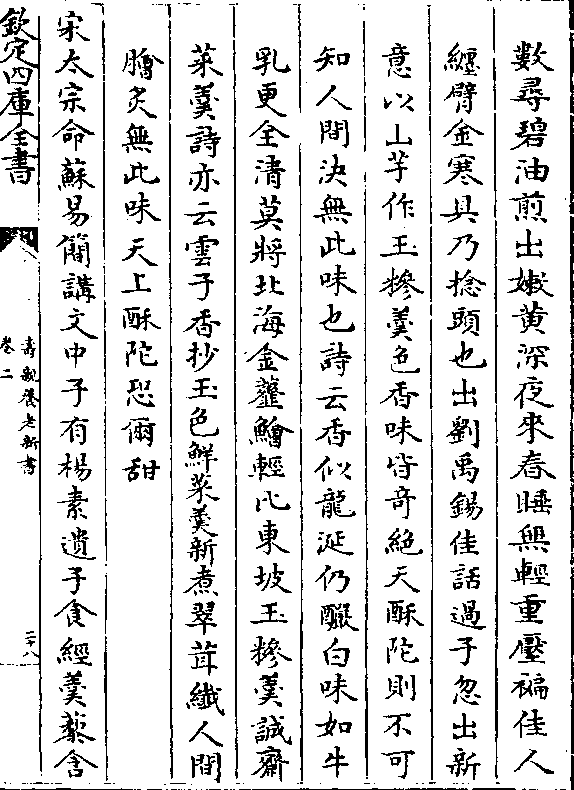 數尋碧油煎出嫩黄深夜來春睡無輕重壓褊佳人
纏臂金寒具乃捻頭也出劉禹錫佳話過子忽出新
意以山芋作玉糝羮色香味皆竒絶天酥陀則不可
知人間決無此味也詩云香似龍涎仍釅白味如牛
乳更全清莫將北海金虀鱠輕比東坡玉糝羮誠齋
菜羮詩亦云雲子香抄玉色鮮菜羮新煮翠茸纖人間
膾炙無此味天上酥陀恐爾甜
宋太宗命蘇易簡講文中子有楊素遺子食經羮藜含
欽定四庫全書
夀親養老新書
卷二
三十八